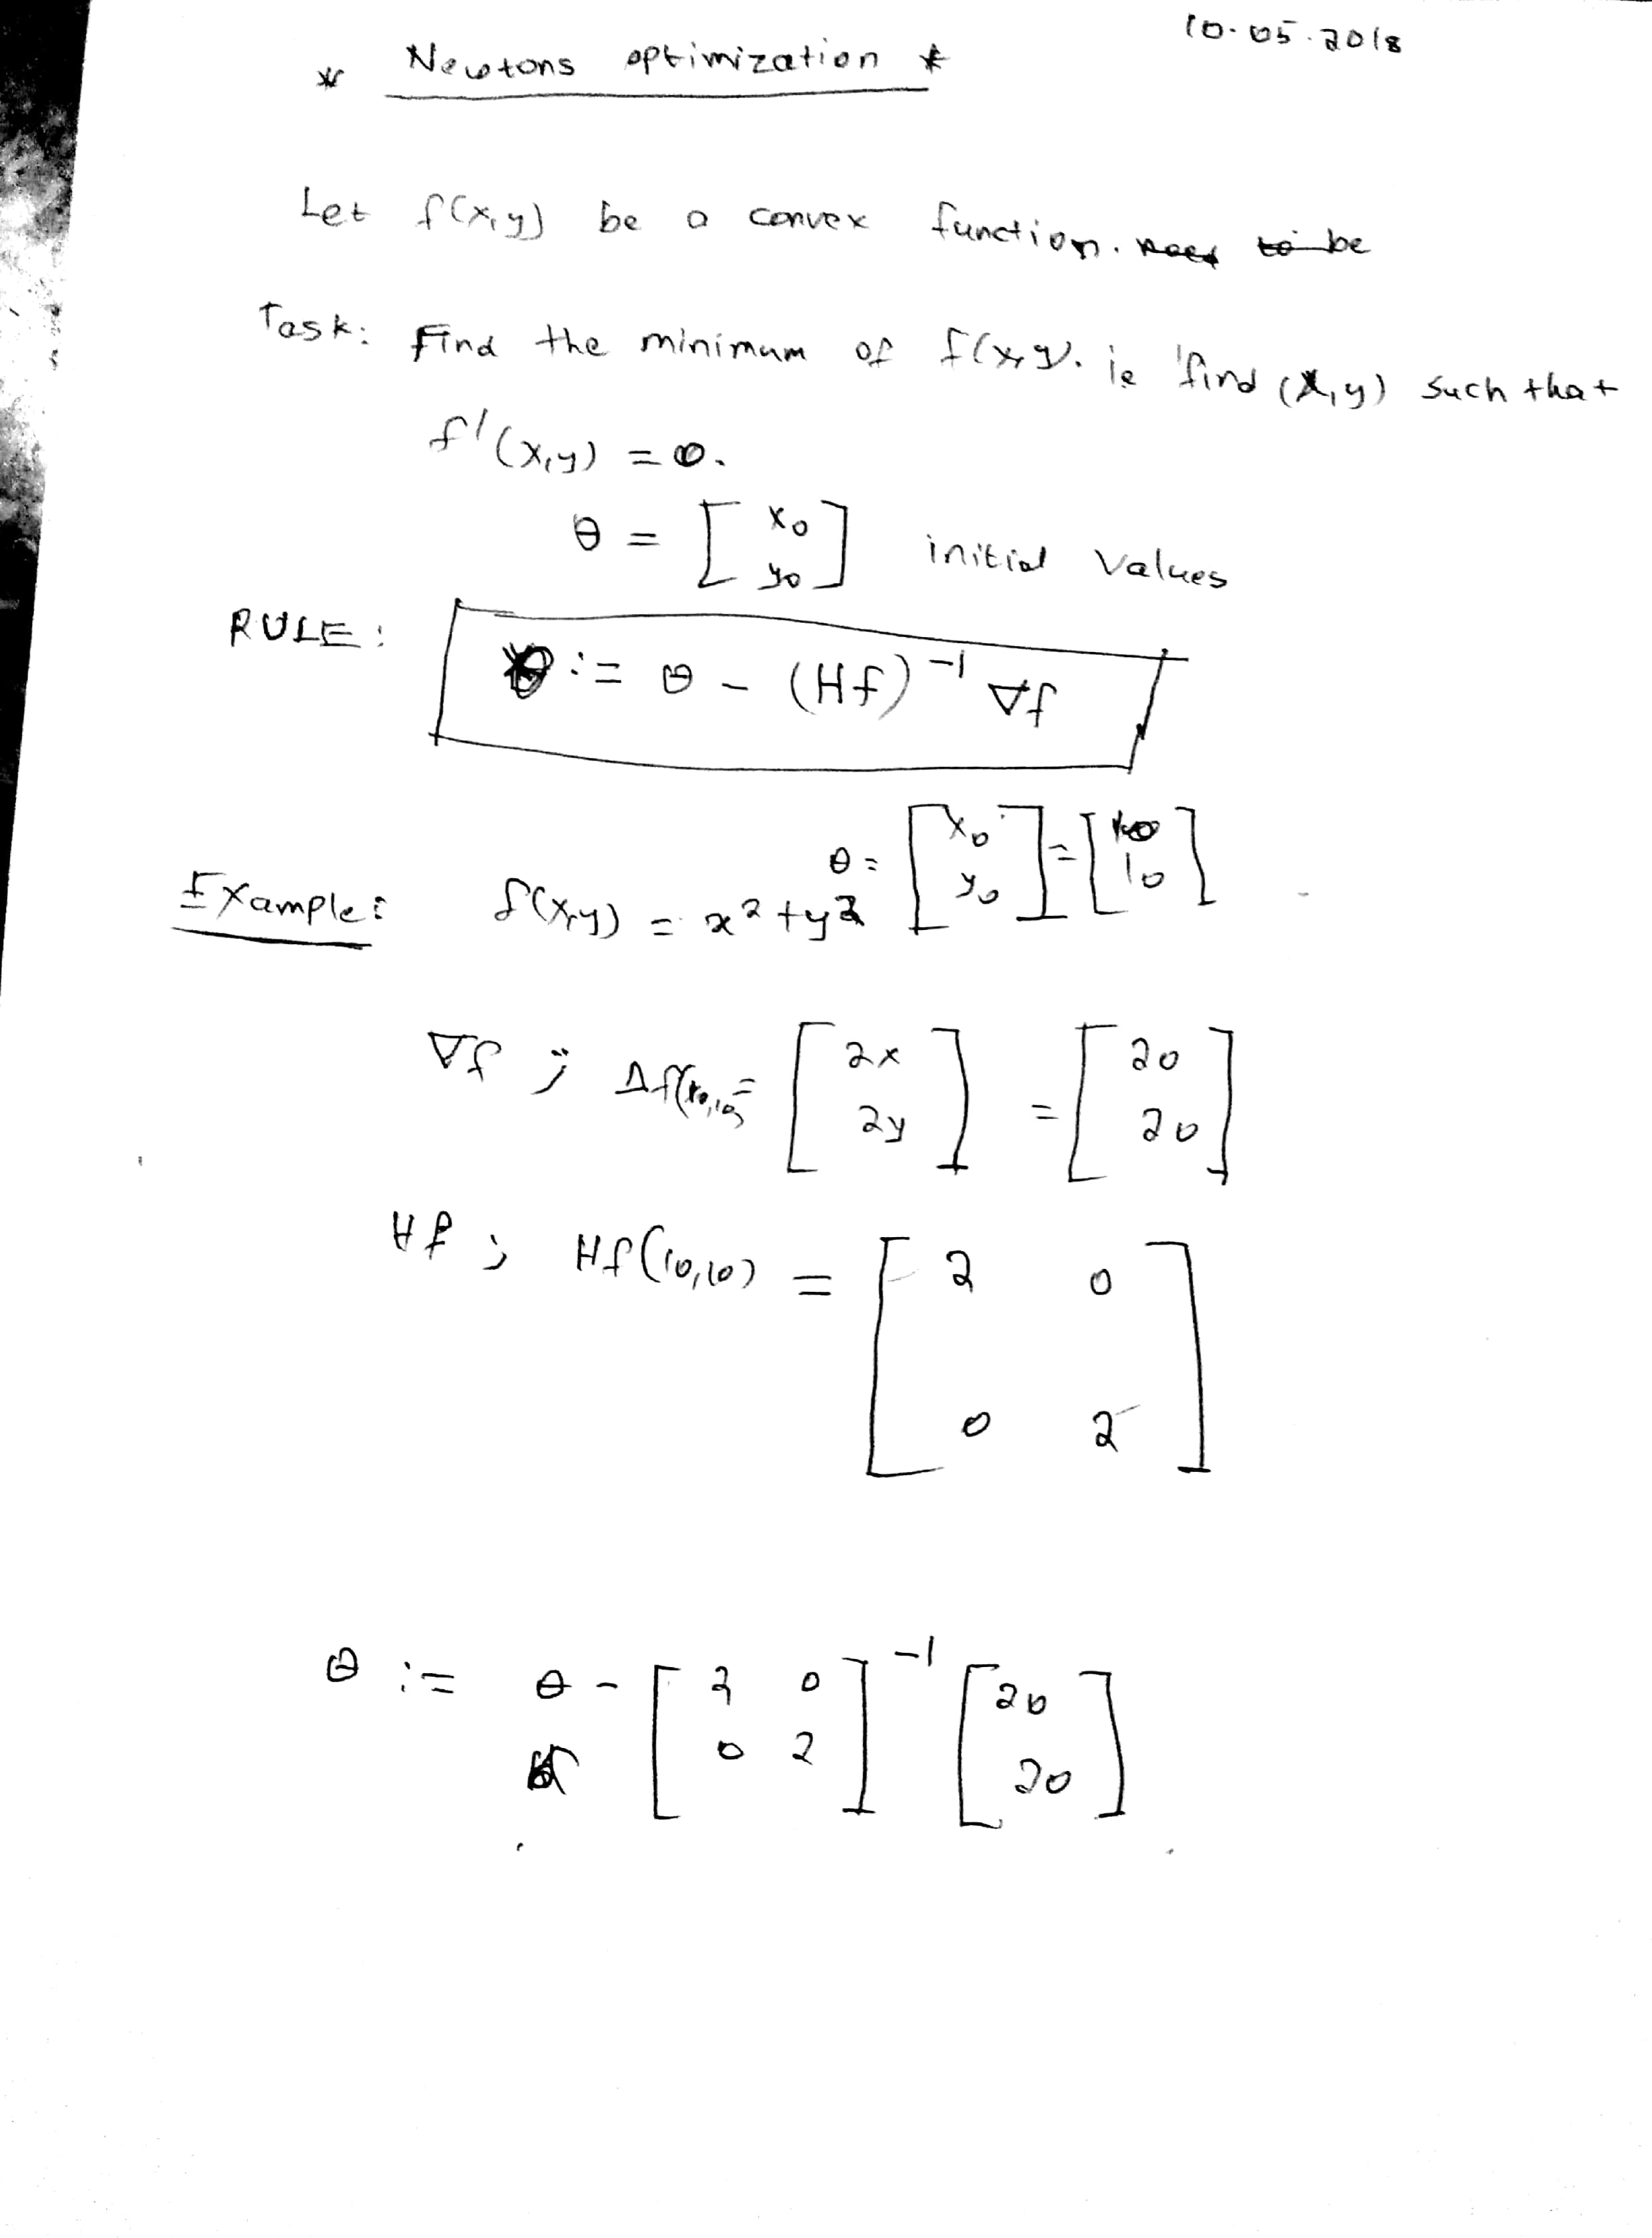 10.05.2018
* Newtons optimization *
Let f(x,y) be a convex function. need to be
Task: Find the minimum of f(x,y). ie find (x,y) such that
f'(x,y) = 0.
θ = [ x₀ y₀ ] initial values
RULE: θ := θ - (Hf)⁻¹ ∇f
θ = [ x₀ y₀ ] = [ 10 10 ]
Example: f(x,y) = x² + y²
∇f ; Δf(10,10) = [ 2x 2y ] = [ 20 20 ]
Hf ; Hf(10,10) = [ 2 0
0 2 ]
θ := θ - [ 2 0 0 2 ]⁻¹ [ 20 20 ]